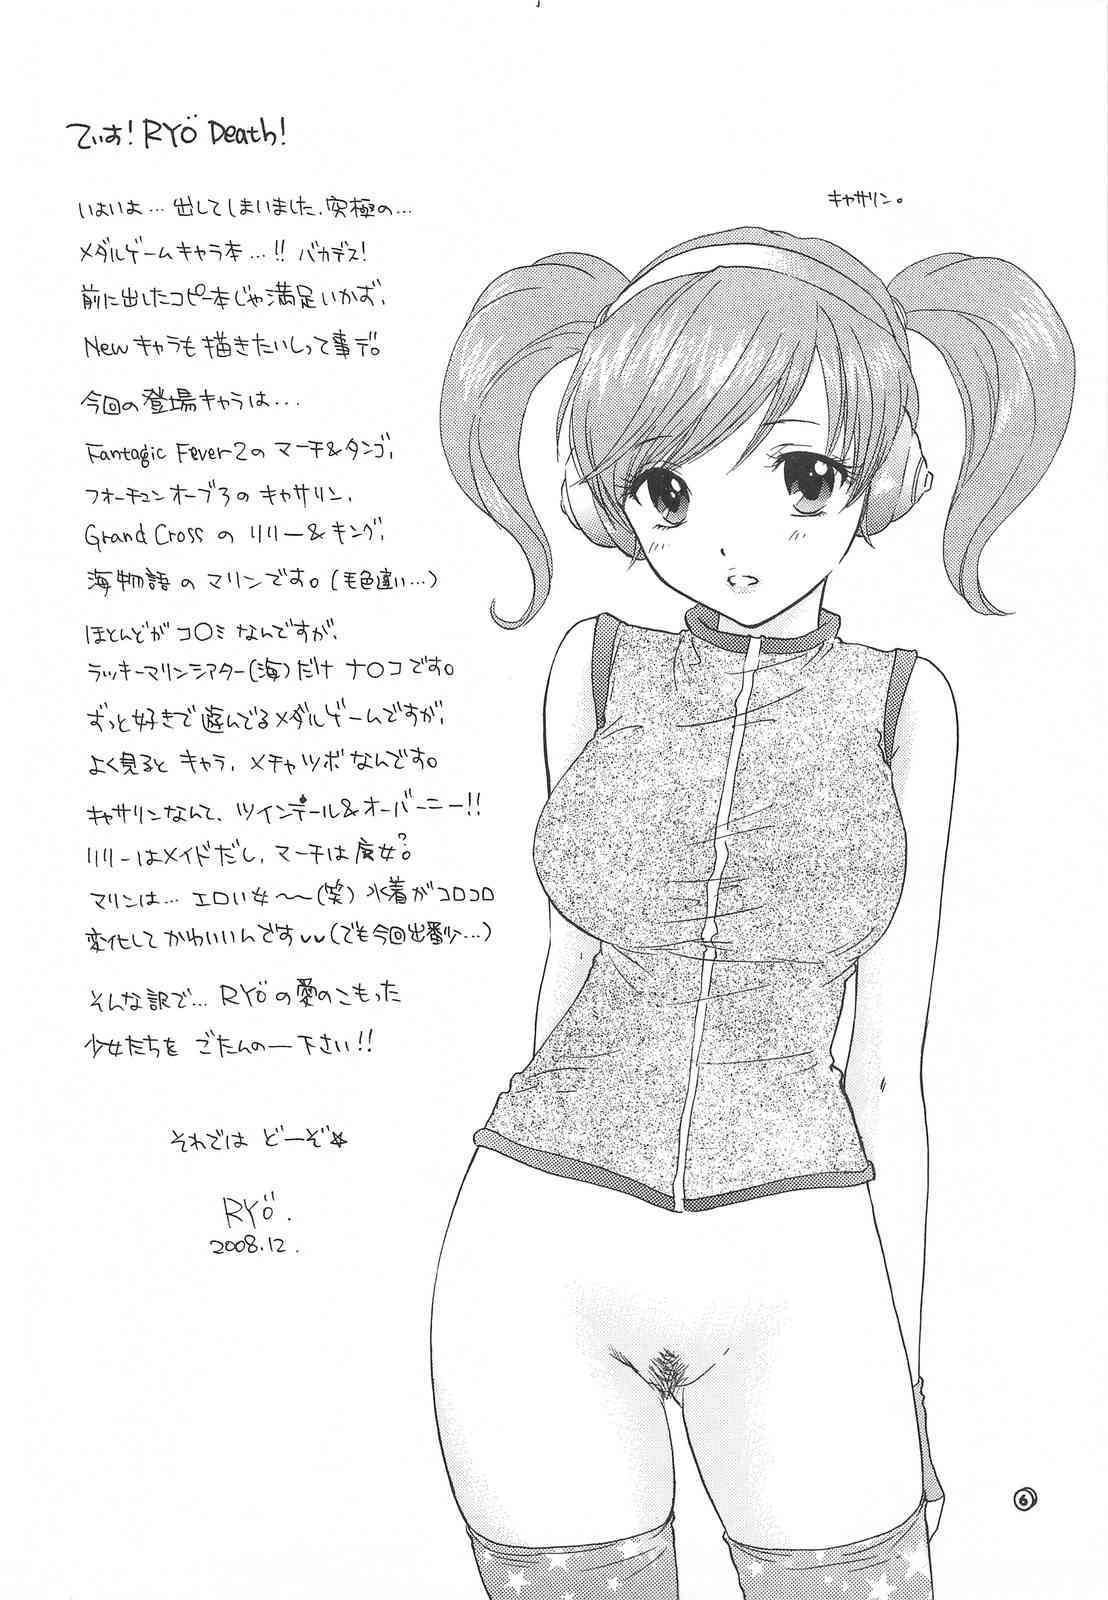 でぃす!RYÖ Death!
いよいよ…出してしまいました、究極の…
メダルゲームキャラ本…!!バカデス!
前に出したコピー本じゃ満足いかず、
Newキャラも描きたいしって事デ。
今回の登場キャラは…
Fantagic Fever2のマーチ&タンゴ、
フォーチュンオーブ3のキャサリン、
Grand Crossのリリー&キング、
海物語のマリンです。(毛色違い…)
ほとんどがコ○ミなんですが、
ラッキーマリンシアター(海)だけナ○コです。
ずっと好きで遊んでるメダルゲームですが、
よく見るとキャラ、メチャツボなんです。
キャサリンなんて、ツインテール&オーバーニー!!
リリーはメイドだし、マーチは魔女?。
マリンは…エロい女~~(笑)水着がコロコロ
変化してかわいいんです(でも今回出番少…)
そんな訳で…RYÖの愛のこもった
少女たちをごたんのー下さい!!
それではどーぞ☆
RYÖ.
2008.12.
キャサリン。
6